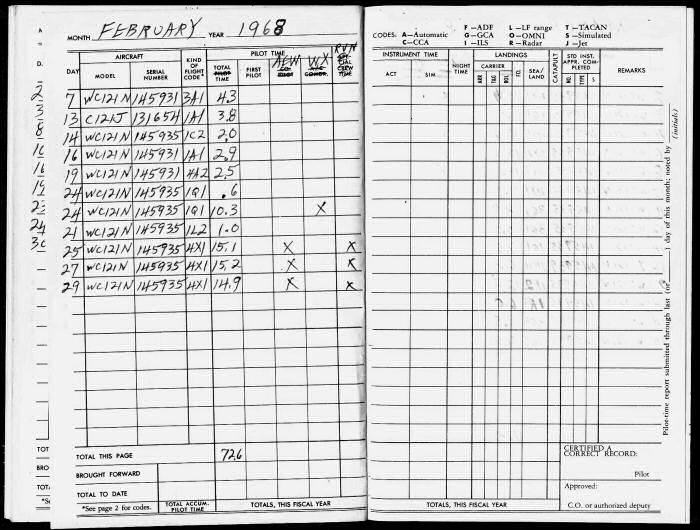 MONTH FEBRUARY YEAR 1968
AIRCRAFT PILOT TIME
DAY MODEL SERIAL NUMBER KIND OF FLIGHT CODE* TOTAL PILOT TIME FIRST PILOT AEW CO-PILOT WX RVN
7 WC121N 145931 3A1 4.3
13 C121J 131654 1A1 3.8
14 WC121N 145935 1C2 2.0
16 WC121N 145931 1A1 2.9
19 WC121N 145931 4A2 2.5
24 WC121N 145935 1Q1 .6
24 WC121N 145935 1Q1 10.3 X
21 WC121N 145935 1L2 1.0
25 WC121N 145935 4X1 15.1 X X
27 WC121N 145935 4X1 15.2 X X
29 WC121N 145935 4X1 14.9 X X
TOTAL THIS PAGE 72.6
BROUGHT FORWARD
TOTAL TO DATE
*See page 2 for codes. TOTAL ACCUM. PILOT TIME TOTALS, THIS FISCAL YEAR
CODES: A—Automatic C—CCA F—ADF G—GCA I—ILS L—LF range O—OMNI R—Radar T—TACAN S—Simulated J—Jet
INSTRUMENT TIME NIGHT TIME LANDINGS CATAPULT STD INST. APPR. COMPLETED REMARKS
ACT SIM CARRIER ARR T&G BOL FD. SEA/LAND NO. TYPE S
Pilot-time report submitted through last (or ) day of this month; noted by (initials)
CERTIFIED A CORRECT RECORD:
Pilot
Approved:
C.O. or authorized deputy
TOTALS, THIS FISCAL YEAR